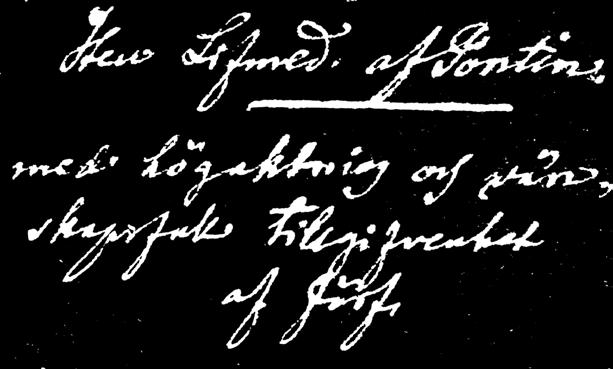 Herr Lifmed. af Pontin.
med högaktning och vän-
skapsfull tillgifvenhet
af Förf.